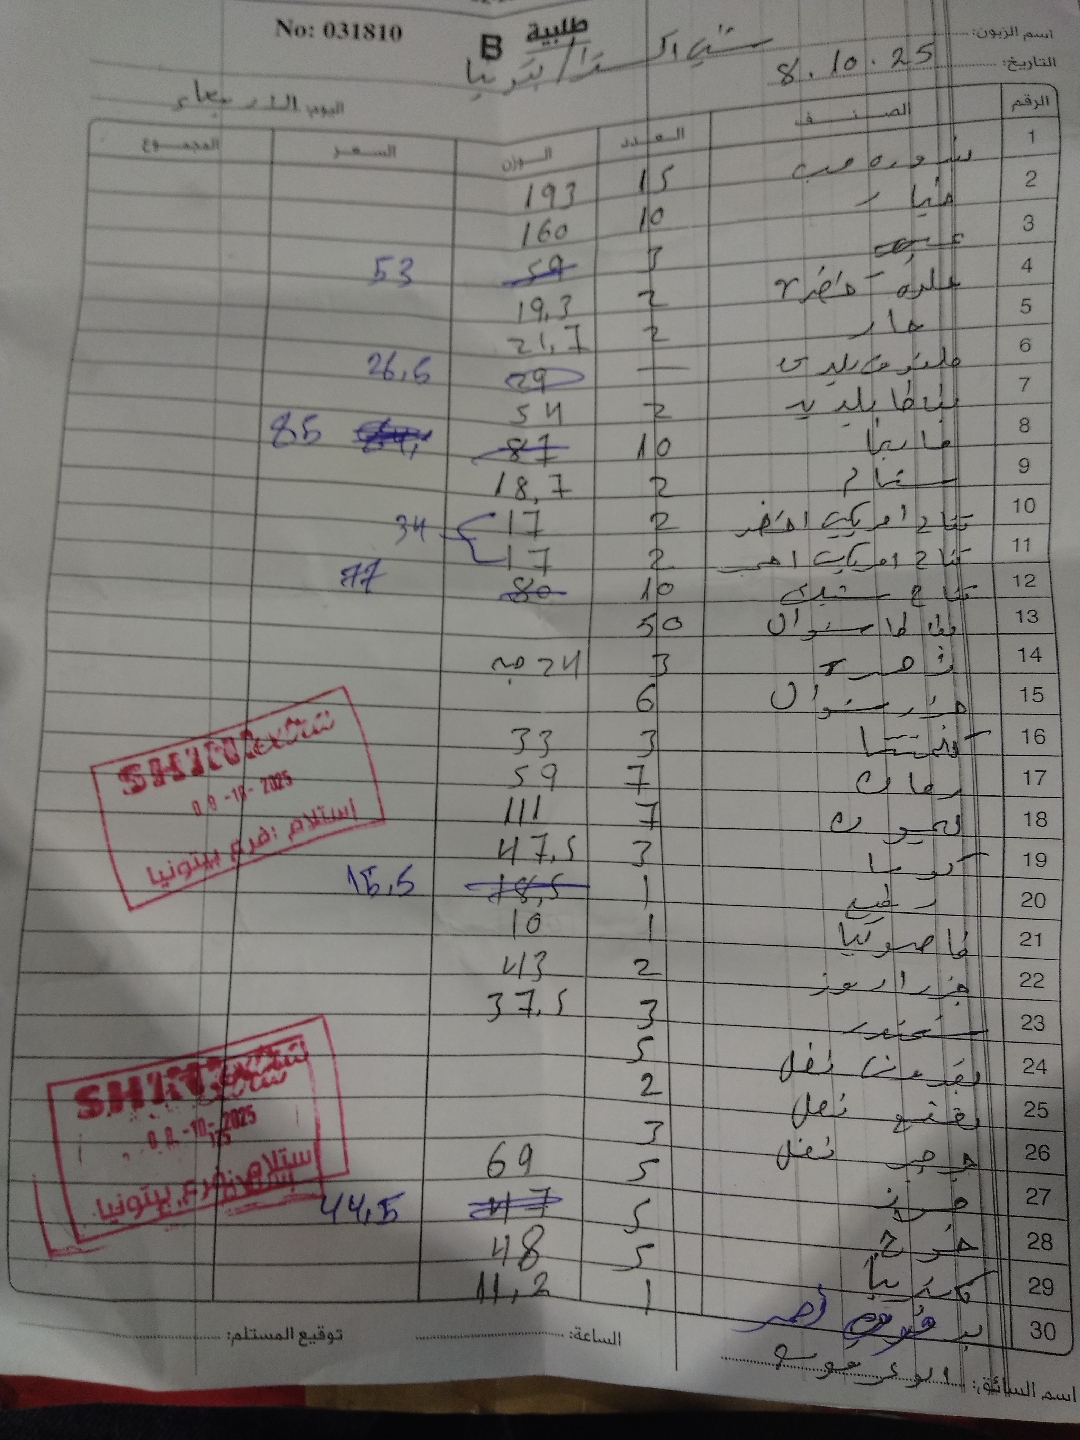 No: 031810
طلبية
B
اسم الزبون:
التاريخ: 8.10.25
اليوم الاربعاء
الرقم الصنف العدد الوزن السعر المجموع
1 بندوره حب 15 193
2 خيار 10 160
3 3 59 53
4 خضر 2 19,3
5 حار 2 21,7
6 بلدي — 29 26,5
7 بطاطا بلديه 2 54
8 10 87 85
9 شمام 2 18,7
10 تفاح امريكي اخضر 2 17 34
11 تفاح امريكي احمر 2 17
12 تفاح سكري 10 80 77
13 بطاطا سنوان 50
14 3 24 حبه
15 جزر سنوان 6
16 كلمنتينا 3 33
17 رمان 7 59
18 ليمون 7 111
19 كوسا 3 47,5
20 1 18,5 15,5
21 فاصوليا 1 10
22 2 43
23 3 37,5
24 بقدونس نعل 5
25 نعنع نعل 2
26 جرجير نعل 3
27 موز 5 69
28 خوخ 5 47 44,5
29 5 48
30 احمر 1 11,2
SHINI
08-10-2025
استلام :فرع بيتونيا
SHINI
08-10-2025
استلام :فرع بيتونيا
اسم السائق:
الساعة:
توقيع المستلم: